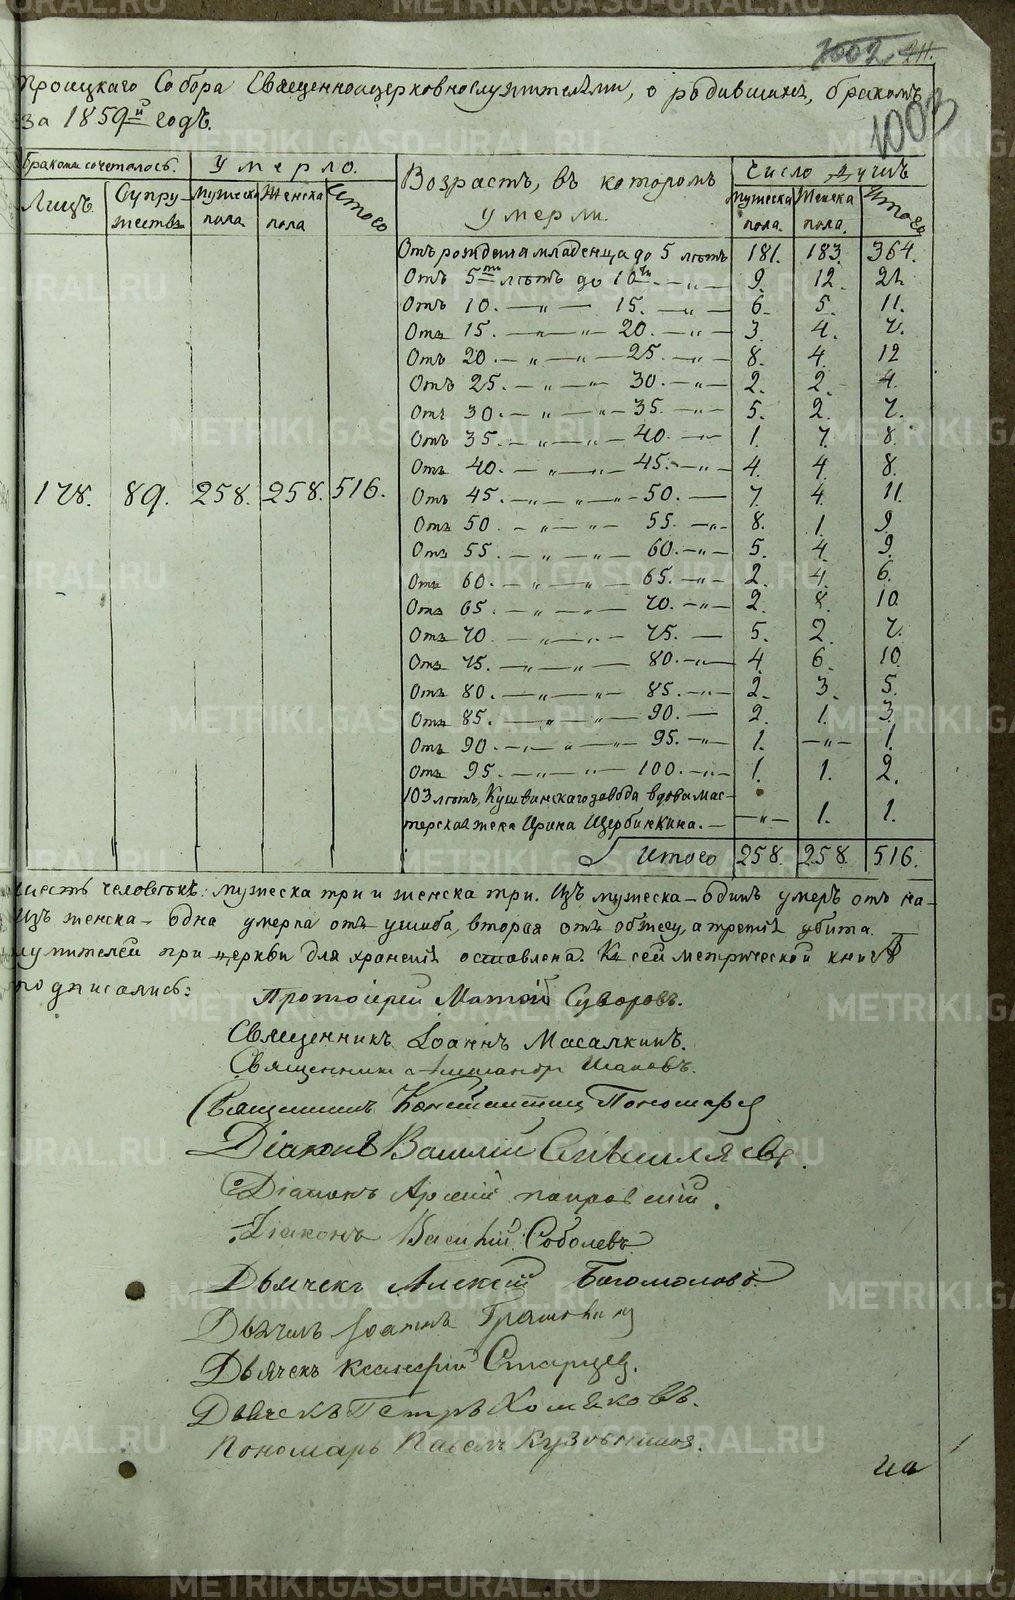 1003
Троицкаго Собора Священноцерковнослужителями, о родившихъ, бракомъ
за 1859й годъ.
Бракомъ сочеталось. Умерло. Возрастъ, въ которомъ умерли. Число душъ
Лицъ Супружествъ Мужеска пола. Женска пола Итого Мужеска пола. Женска пола. Итого
Отъ рожденія младенца до 5 лѣтъ 181. 183. 364.
Отъ 5ти лѣтъ до 10ти — „ — 9. 12. 21.
Отъ 10. — „ — 15. — „ — 6. 5. 11.
Отъ 15. — „ — „ — 20. — „ — 3. 4. 7.
Отъ 20. — „ — „ — 25. — „ — 8. 4. 12
Отъ 25. — „ — „ — 30. — „ — 2. 2. 4.
Отъ 30. — „ — „ — 35. — „ — 5. 2. 7.
Отъ 35. — „ — „ — 40. — „ — 1. 7. 8.
Отъ 40. — „ — „ — 45. — „ — 4. 4. 8.
178. 89. 258. 258. 516. Отъ 45. — „ — „ — 50. — 7. 4. 11.
Отъ 50. — „ — „ — 55. — „ — 8. 1. 9.
Отъ 55. — „ — „ — 60. — „ — 5. 4. 9.
Отъ 60. — „ — „ — 65. — „ — 2. 4. 6.
Отъ 65. — „ — „ — 70. — „ — 2. 8. 10.
Отъ 70. — „ — „ — 75. — 5. 2. 7.
Отъ 75. — „ — „ — 80. — „ — 4 6. 10.
Отъ 80. — „ — „ — 85. — „ — 2. 3. 5.
Отъ 85. — „ — „ — 90. — 2. 1. 3.
Отъ 90. — „ — „ — 95. — „ — 1. — „ — 1.
Отъ 95. — „ — „ — 100. — „ — 1. 1. 2.
103 лѣтъ, Кушвинскаго завода вдова мас-
терская жена Ирина Щербинкина. — — „ — 1. 1.
Итого 258. 258. 516.
шесть человѣкъ: мужеска три и женска три. Изъ мужеска – одинъ умеръ отъ на-
Изъ женска – одна умерла отъ ушиба, вторая отъ обжегу, а третія убита.
лужителей при церкви для храненія оставлена. Къ сей метрической книгѣ
подписались:
Протоіерей Матѳій Суворовъ.
Священникъ Іоаннъ Масалкинъ.
Священникъ Александр
Священникъ Константинъ Пономарев
Діаконъ Василій
Діаконъ Арсеній
Діаконъ Василій Соболевъ
Дьячекъ Алексій Богомоловъ
Дьячекъ Іоаннъ
Дьячекъ Старцев.
Дьячекъ Петръ Хомяковъ.
Пономарь Павелъ Кузовников.
на
METRIKI.GASO-URAL.RU